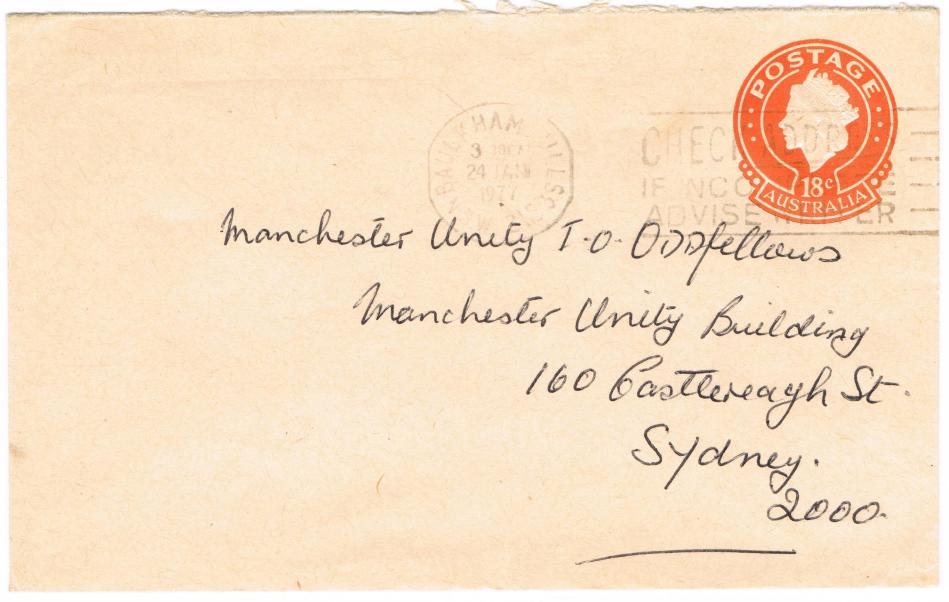 POSTAGE
18c
AUSTRALIA
BAULKHAM HILLS
3
24 JAN
1977
CHECK ADDRE
IF INCO
ADVISE
Manchester Unity I.O. ODDfellows
Manchester Unity Building
160 Castlereagh St.
Sydney.
2000.